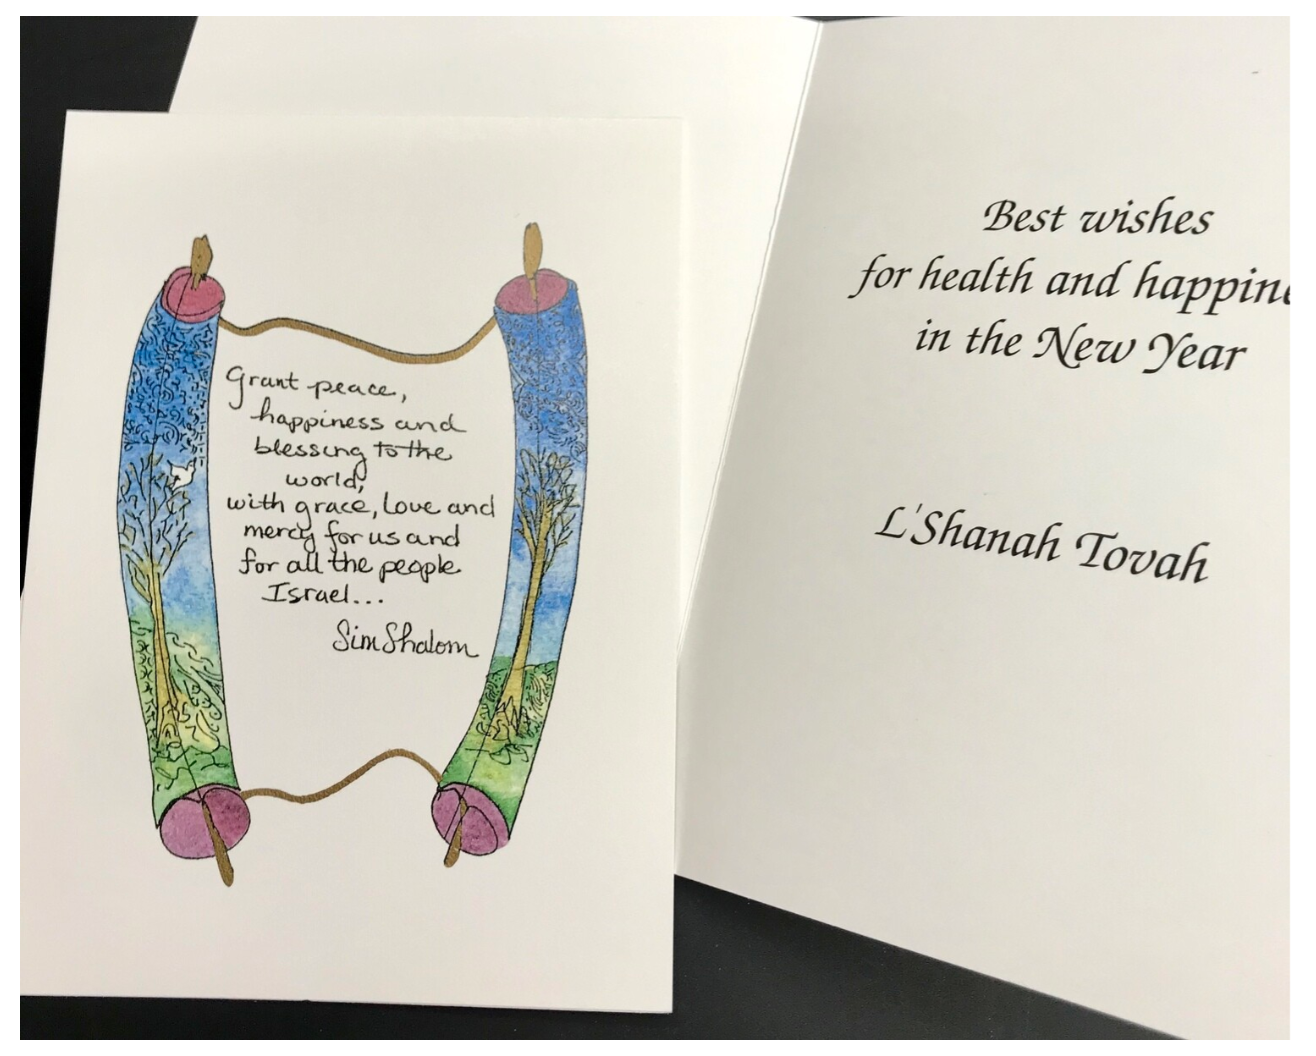 Grant peace,
happiness and
blessing to the
world,
with grace, love and
mercy for us and
for all the people
Israel...
Sim Shalom
Best wishes
for health and happine
in the New Year
L'Shanah Tovah